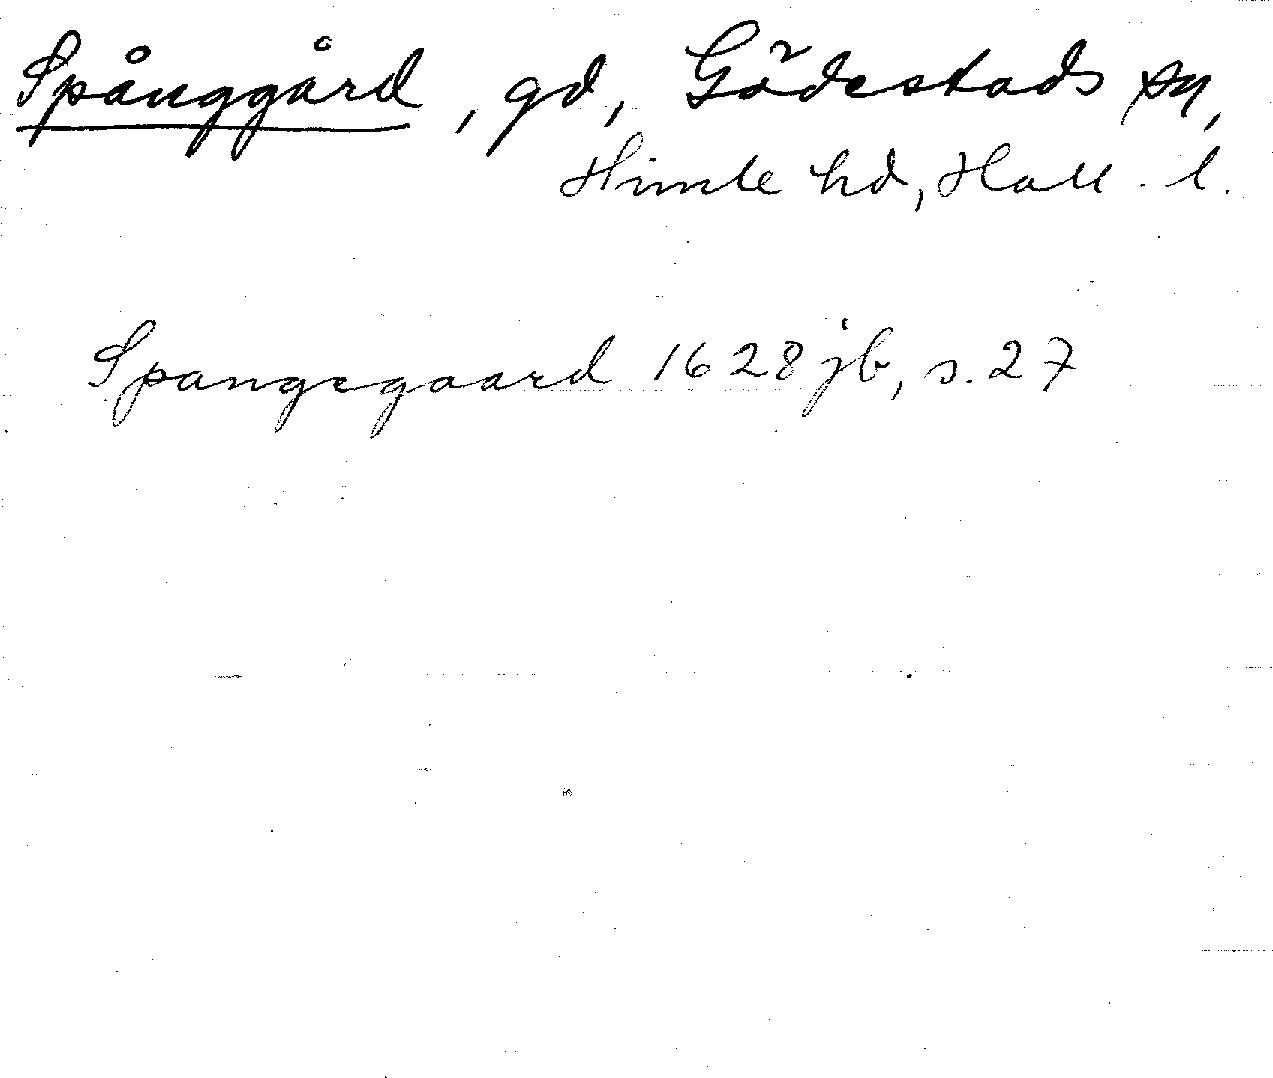 Spånggård, gd, Gödestads sn,
Himle hd, Hall. l.
Spangegaard 1628 jb, s. 27